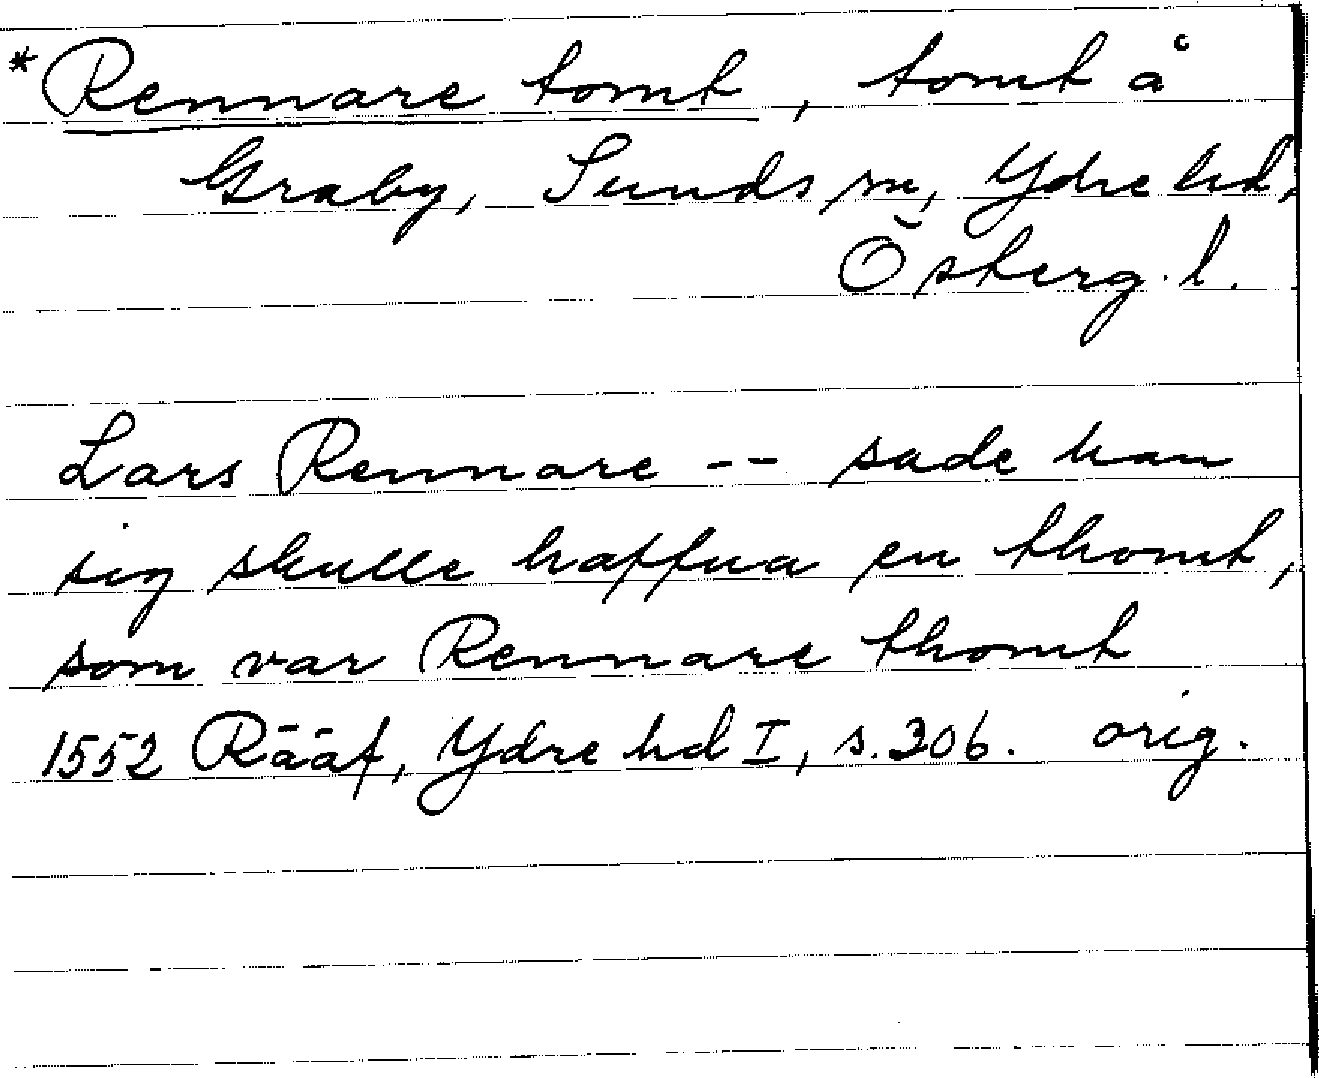 *Rennare tomt, tomt å
Graby, Sunds sn, Ydre hd,
Österg. l.
Lars Rennare -- sade han
sig skulle haffua en thomt,
som var Rennare thomt
1552 Rääf, Ydre hd I, s. 306. orig.